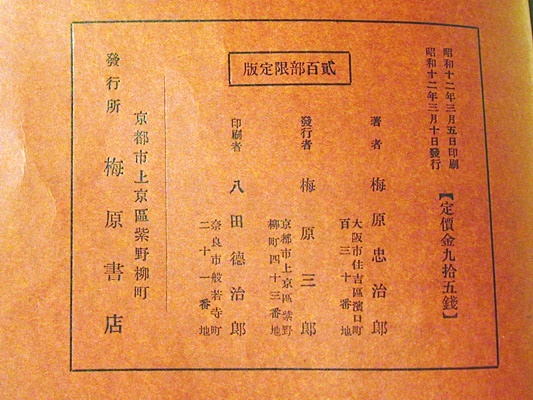 昭和十二年三月五日印刷
昭和十二年三月十日發行
【定價金九拾五錢】
貳百部限定版
著者 梅原忠治郎
大阪市住吉區濱口町
百三十番地
發行者 梅原三郎
京都市上京區紫野
柳町四十三番地
印刷者 八田德治郎
奈良市般若寺町
二十一番地
京都市上京區紫野柳町
發行所 梅原書店